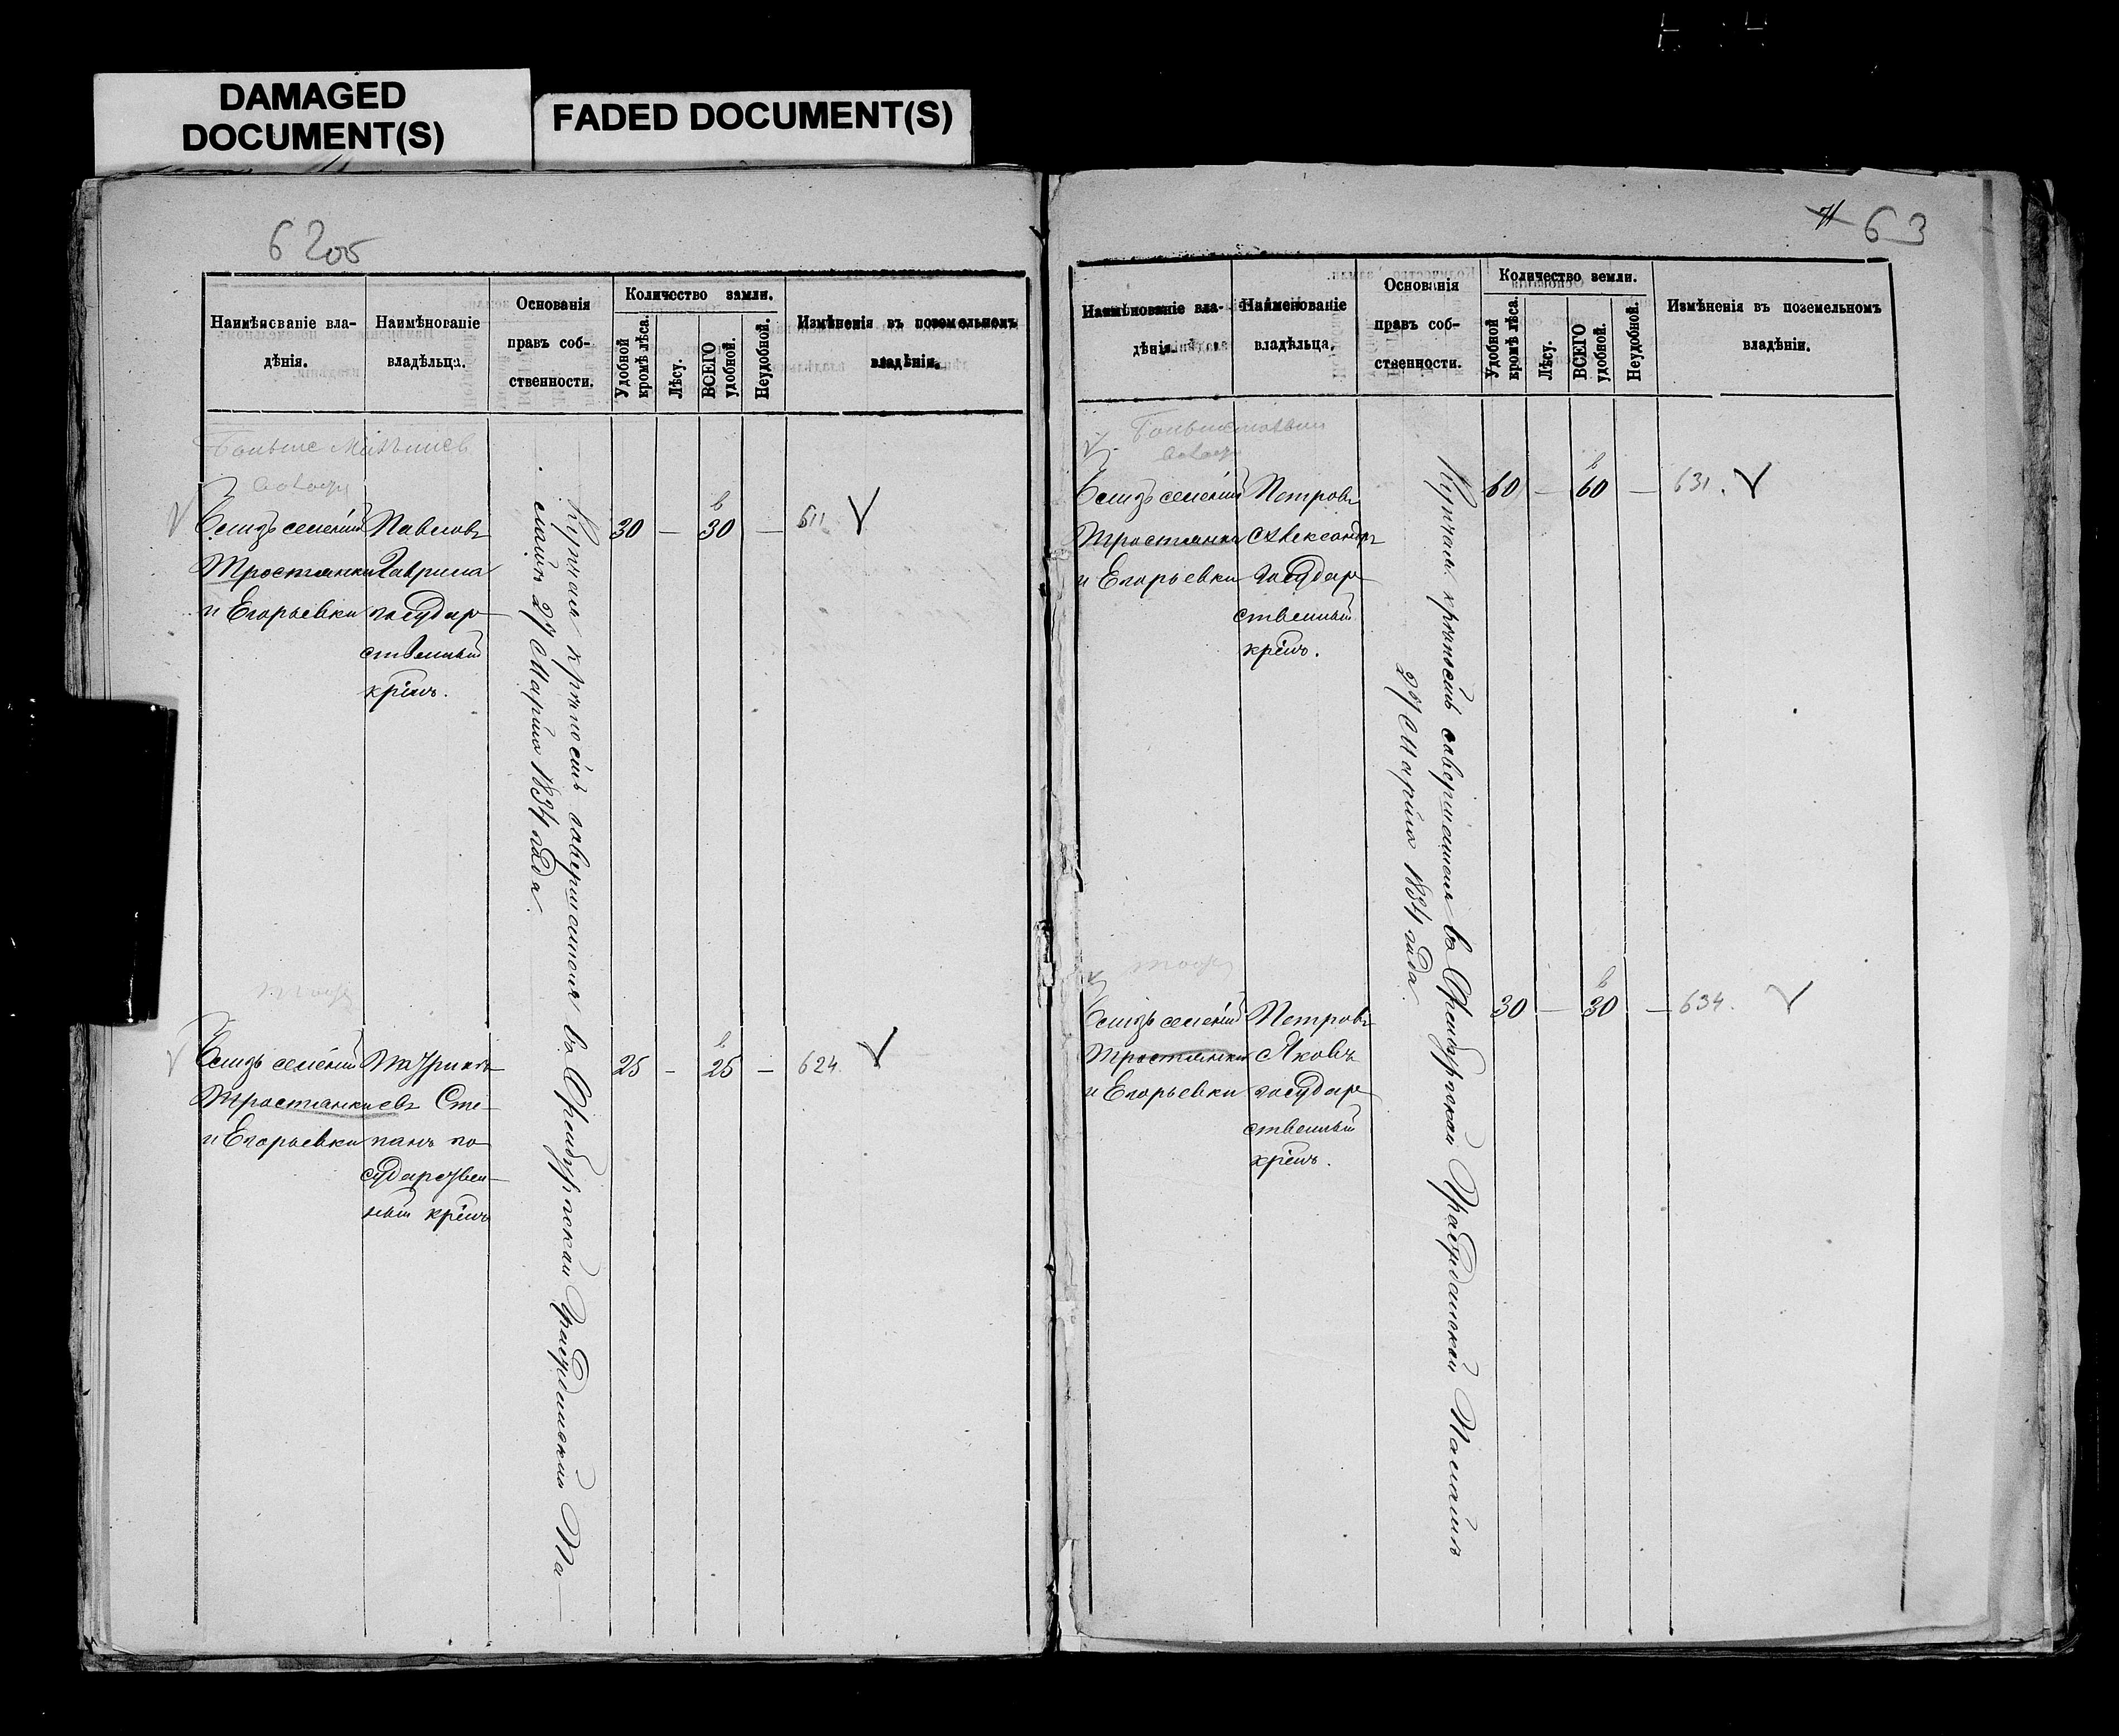 DAMAGED
DOCUMENT(S)
FADED DOCUMENT(S)
62об
Наимѣнованіе вла-
дѣнія.
Наимѣнованіе
владѣльца.
Основанія
правъ соб-
ственности.
Количество земли.
Удобной
кромѣ лѣса.
Лѣсу.
ВСЕГО
удобной.
Неудобной.
Измѣненія въ поземельномъ
владѣніи.
Близь селеній
Тростянки
и Егорьевки
Павловъ
Гаврила
государ-
ственный
крінъ.
Купчая крѣпость совершонная въ Оренбургской Гражданской Па-
латѣ 27 Марта 1834 года.
30 — 30 — 611 V
Близь селеній
Тростянки
и Егорьевки
Сте-
панъ го-
сударствен-
ный крінъ
25 — 25 — 624. V
71 63
Наимѣнованіе вла-
дѣнія.
Наименованіе
владѣльца.
Основанія
правъ соб-
ственности.
Количество земли.
Удобной
кромѣ лѣса.
Лѣсу.
ВСЕГО
удобной.
Неудобной.
Измѣненія въ поземельномъ
владѣніи.
Близь селеній
Тростянки
и Егорьевки
Петровъ
Александръ
государ-
ственный
крінъ.
Купчая крѣпость совершонная въ Оренбургской Гражданской Палатѣ
27 Марта 1834 года.
60 — 60 — 631. V
Близь селеній
Тростянки
и Егорьевки
Петровъ
Яковъ
государ-
ственный
крінъ.
30 — 30 — 634. V